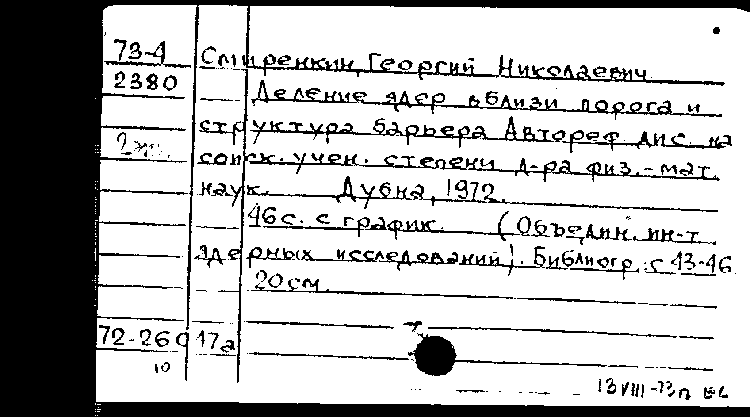 73-4 Смиренкин, Георгий Николаевич
2380 Деление ядер вблизи порога и
структура барьера Автореф дис. на
соиск. учен. степени д-ра физ.-мат.
наук. Дубна, 1972.
46 с. с график. (Объедин. ин-т
ядерных исследований). Библиогр.: с 43-46
20 см.
72-260 17а
10
13 VIII-73 п